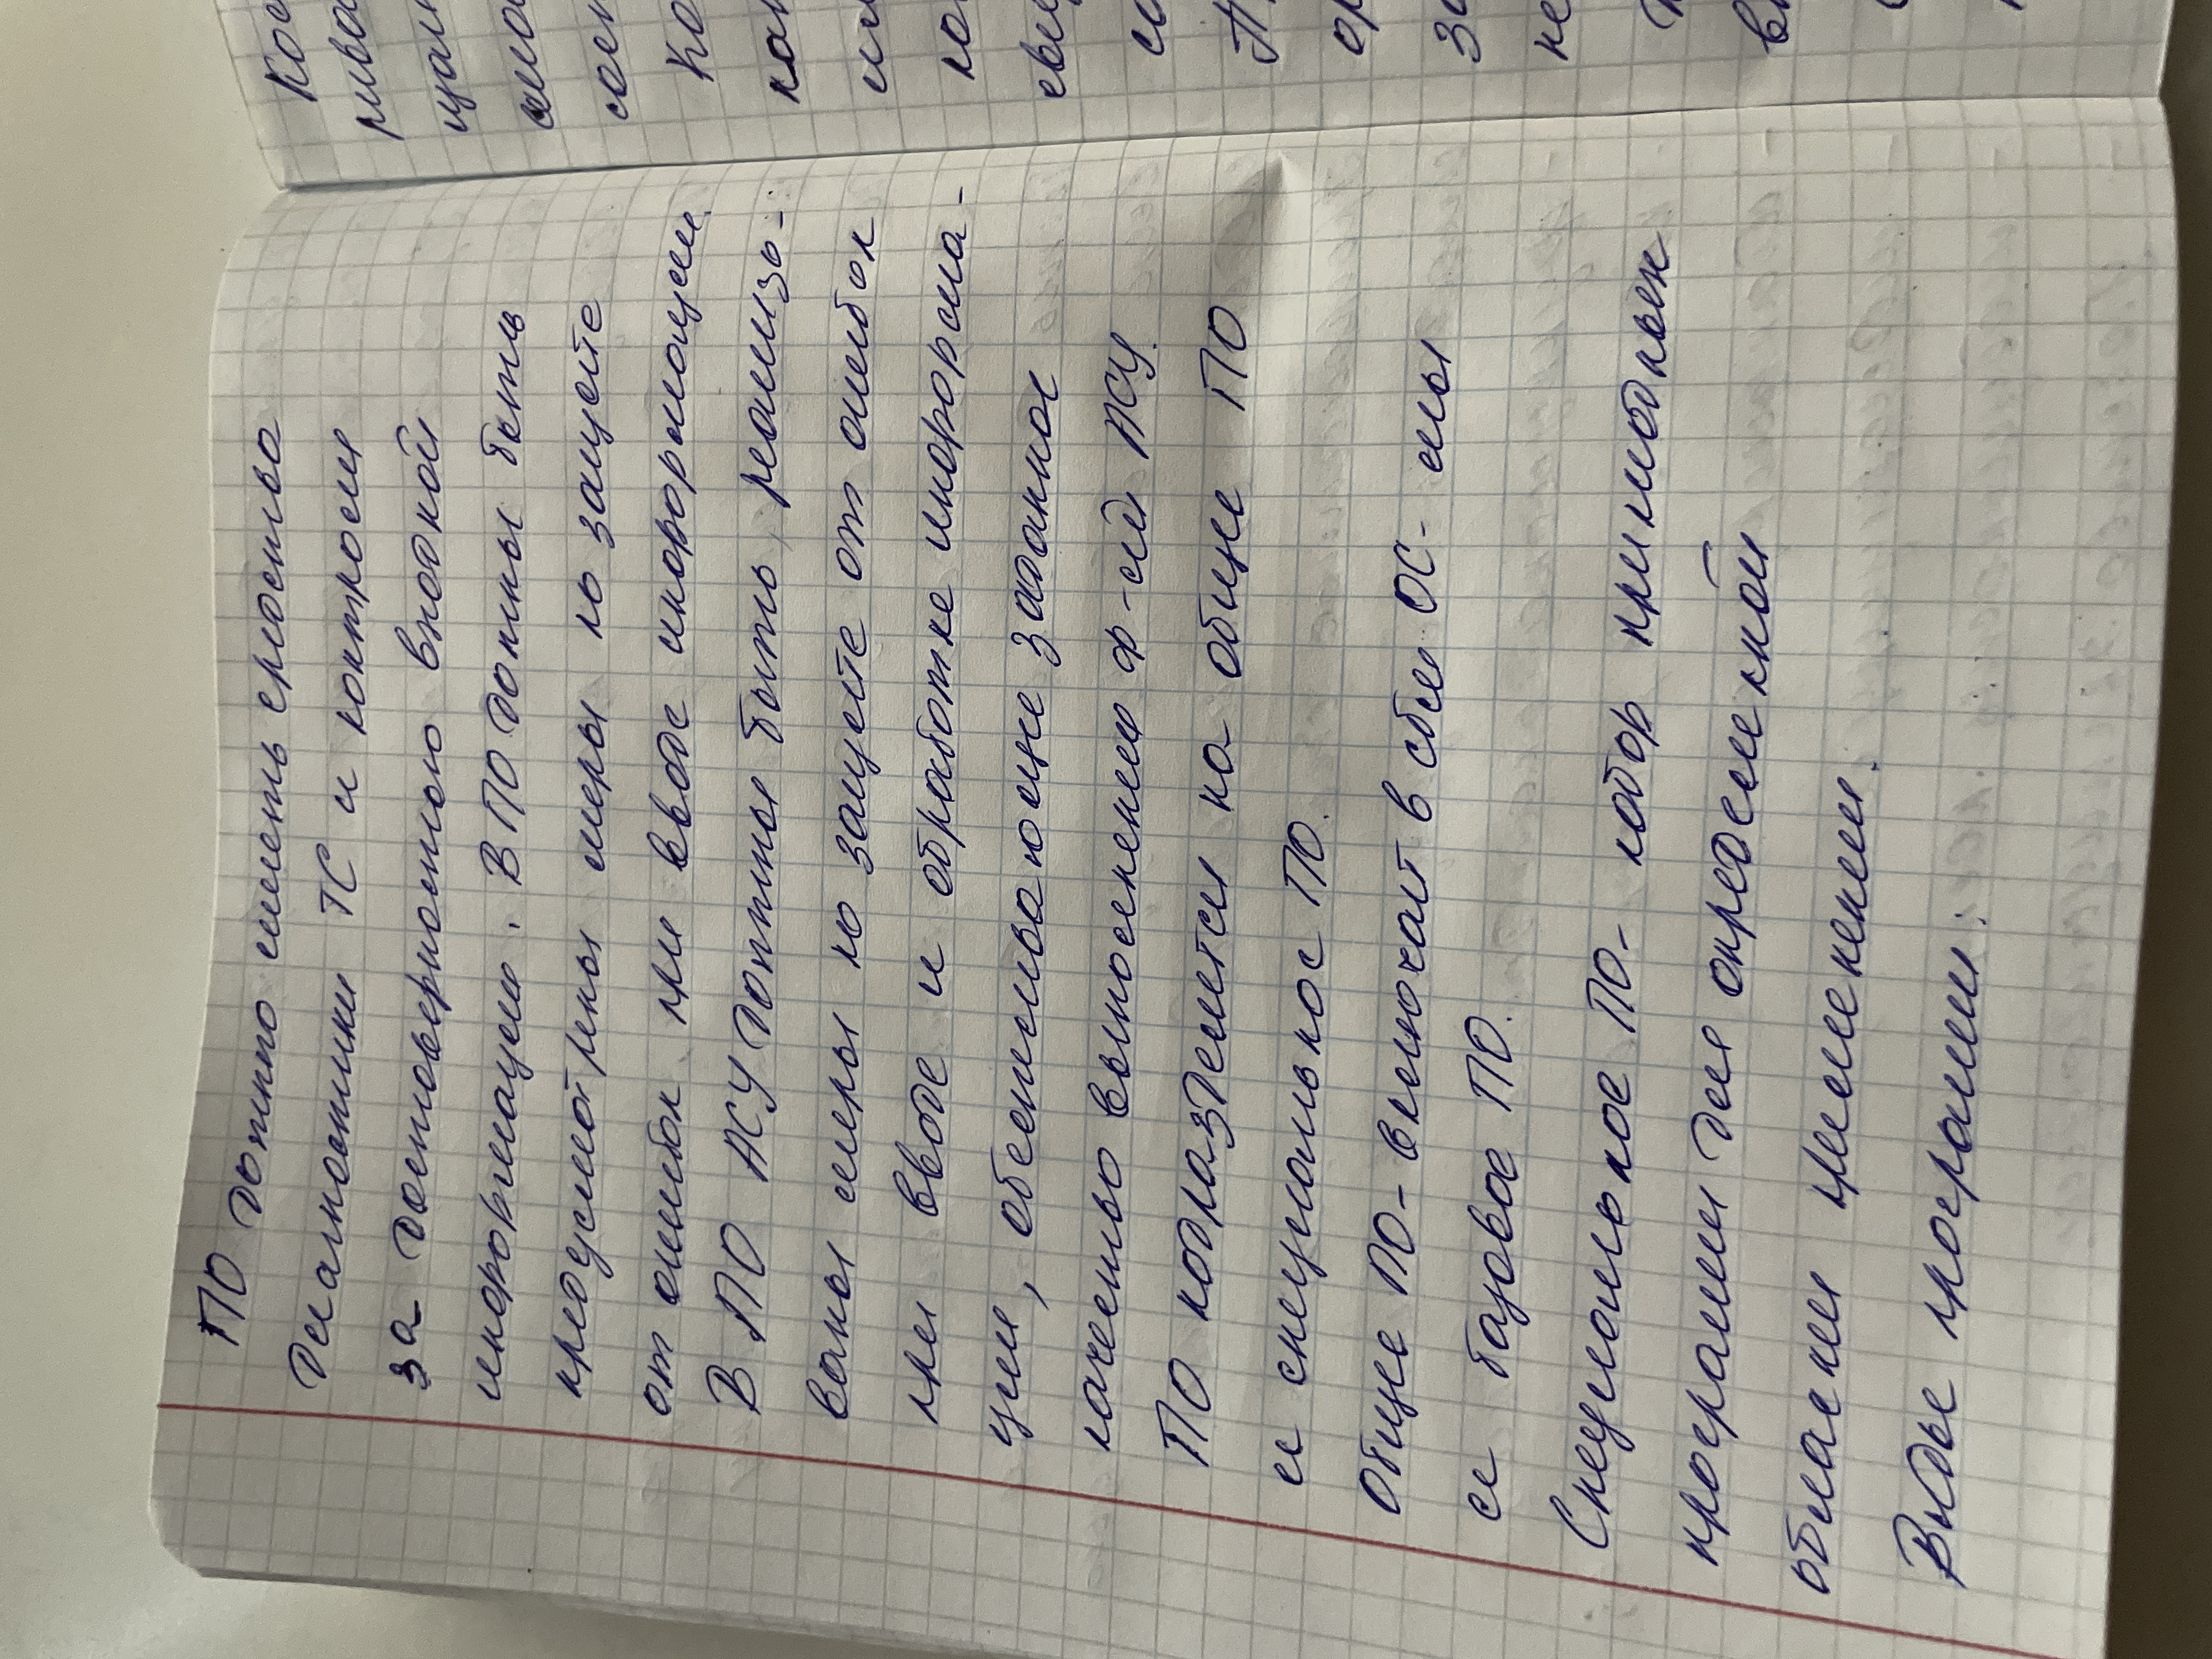 ПО должно иметь средства
диагностики ТС и контроля
за достоверностью входной
информации. В ПО должны быть
предусмотрены меры по защите
от ошибок при вводе информации.
В ПО АСУ должны быть реализо-
ваны меры по защите от ошибок
при вводе и обработке информа-
ции, обеспечивающие заданное
качество выполнения ф-ий АСУ.
ПО подразделяется на общее ПО
и специальное ПО.
Общее ПО - включает в себя ОС-мы
и базовое ПО.
Специальное ПО - набор прикладных
программ для определенной
области применения.
Виды программ: